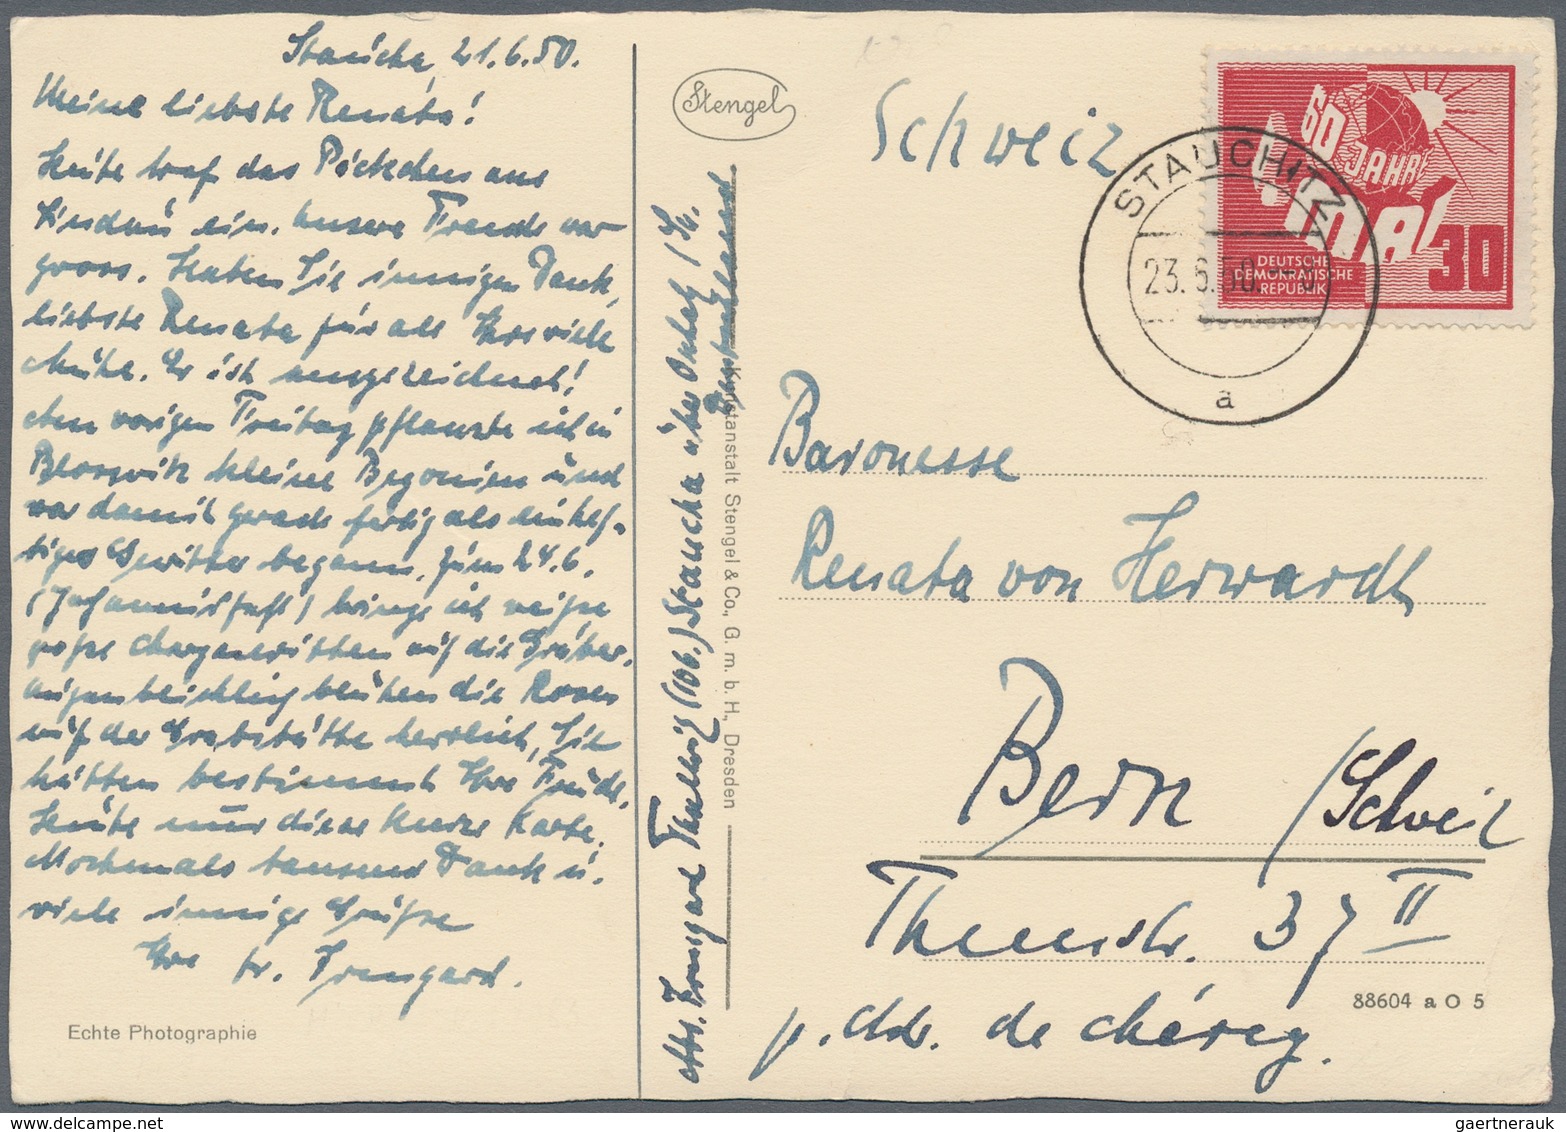 Staucha, 21.6.50.
Meine liebste Renata!
Heute traf das Päckchen aus
Lindau ein. Unsere Freude war
gross. Haben Sie innigen Dank,
liebste Renata für all Ihre viele
Mühe. Er ist ausgezeichnet!
Am vorigen Freitag pflanzte ich in
kleine Begonien und
war damit gerade fertig als ein hef-
tiges Gewitter begann. Zum 24.6.
(Johannisfest) bringe ich weisse
grosse Margeriten auf die Gräber.
Augenblicklich blühen die Rosen
auf der Grabstätte herrlich, Sie
hätten bestimmt Ihre Freude.
Heute nur diese kurze Karte.
Nochmals tausend Dank u.
viele innige Grüsse
Ihre Irmgard.
Echte Photographie
Stengel
Kunstanstalt Stengel & Co., G. m. b. H., Dresden
Abs. Irmgard (10b.) Staucha über /Sa.
Deutschland
Schweiz
60 JAHRE
1. MAI
30
DEUTSCHE
DEMOKRATISCHE
REPUBLIK
STAUCHITZ
23.6.50.
a
Baronesse
Renata von Herwardt
Bern /Schweiz
Thunstr. 37 II
p. Adr. de Chérey.
88604 a O 5
gaertnerauk